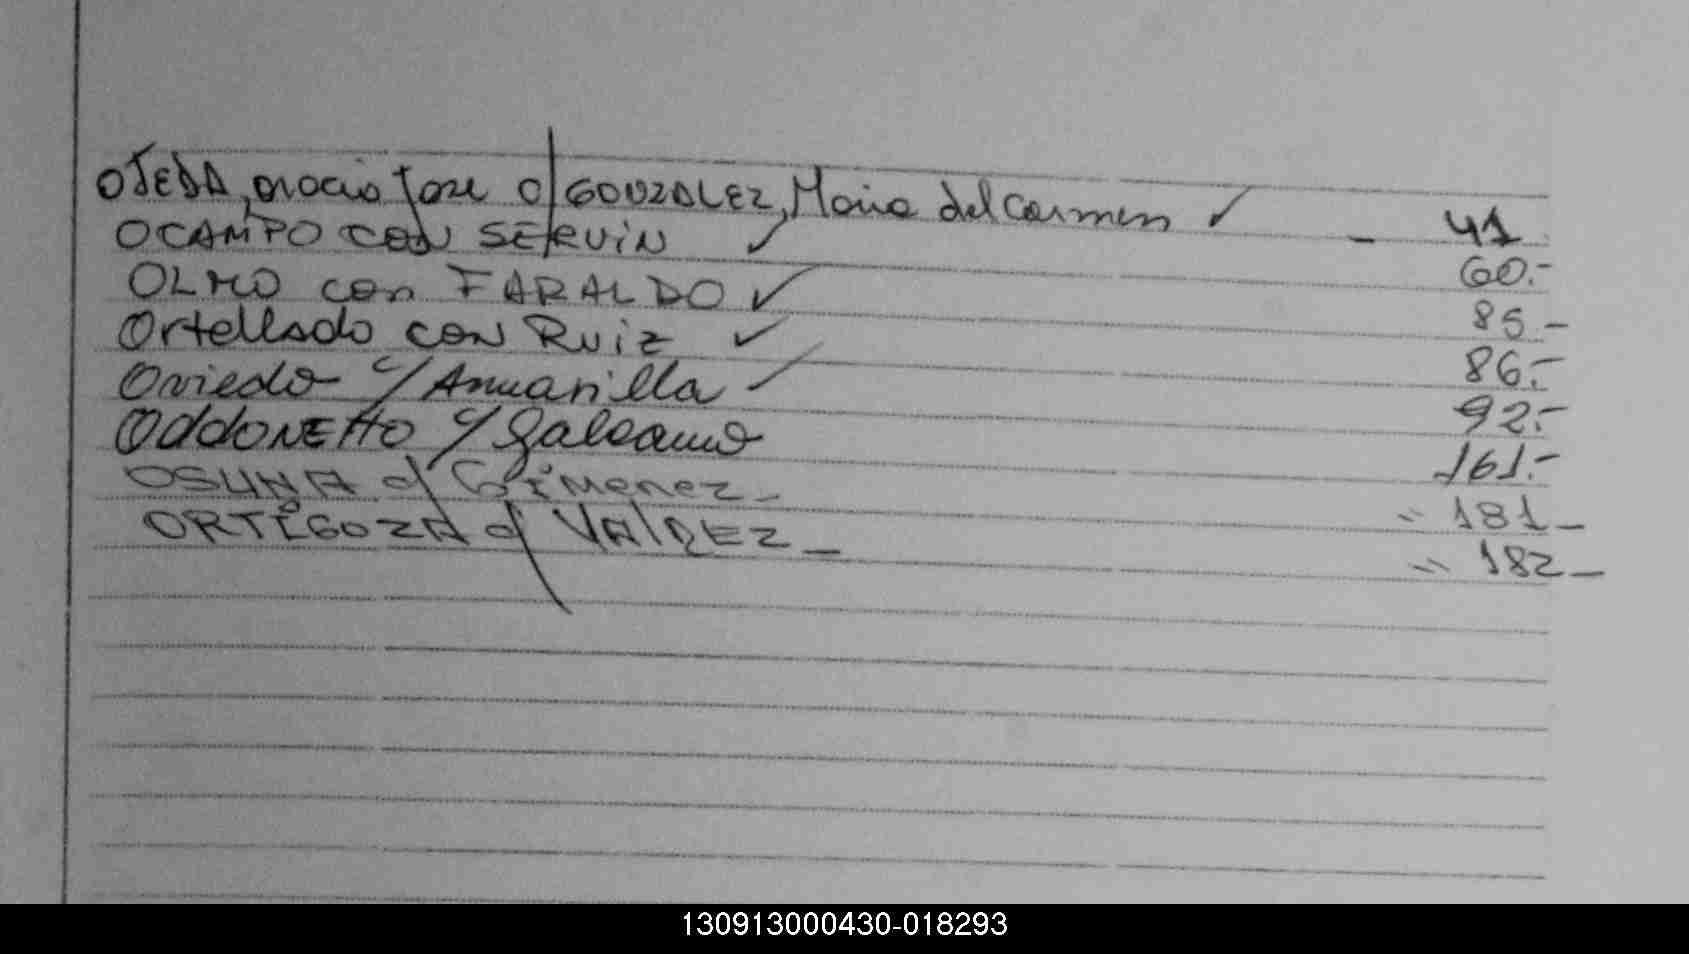 OJEDA, Jose c/ GONZALEZ, Maria del Carmen ✓ - 41
OCAMPO CON SERVIN ✓ 60.-
OLMO con FARALDO ✓ 85.-
Ortellado con Ruiz ✓ 86.-
Oviedo c/ Amarilla ✓ 92.-
ODDONETTO c/ Galeano 161.-
OSUNA c/ Gimenez - " 181-
ORTIGOZA c/ VALDEZ - " 182-
130913000430-018293